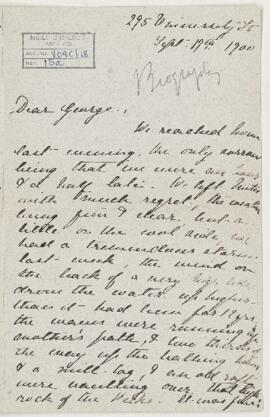 295 University St
Sept 19th 1900
McGILL UNIVERSITY
ARCHIVES
ACC. NO. 909C/18
REF. 152
Biography
Dear George,
We reached home
last evening, the only narrow
being that we were an hour
& a half late. We left
with much regret, the weather
being fine & clear, but a
little on the cool side, we
had a tremendous storm
last week, the wind on
the back of a very high tide
drove the water up higher
than it had been for 12 yrs.
the waves were running up
mother's path, & two thirds of
the way up the bathing houses
& a small log, & an old
were vaulting over that
rock of the It was